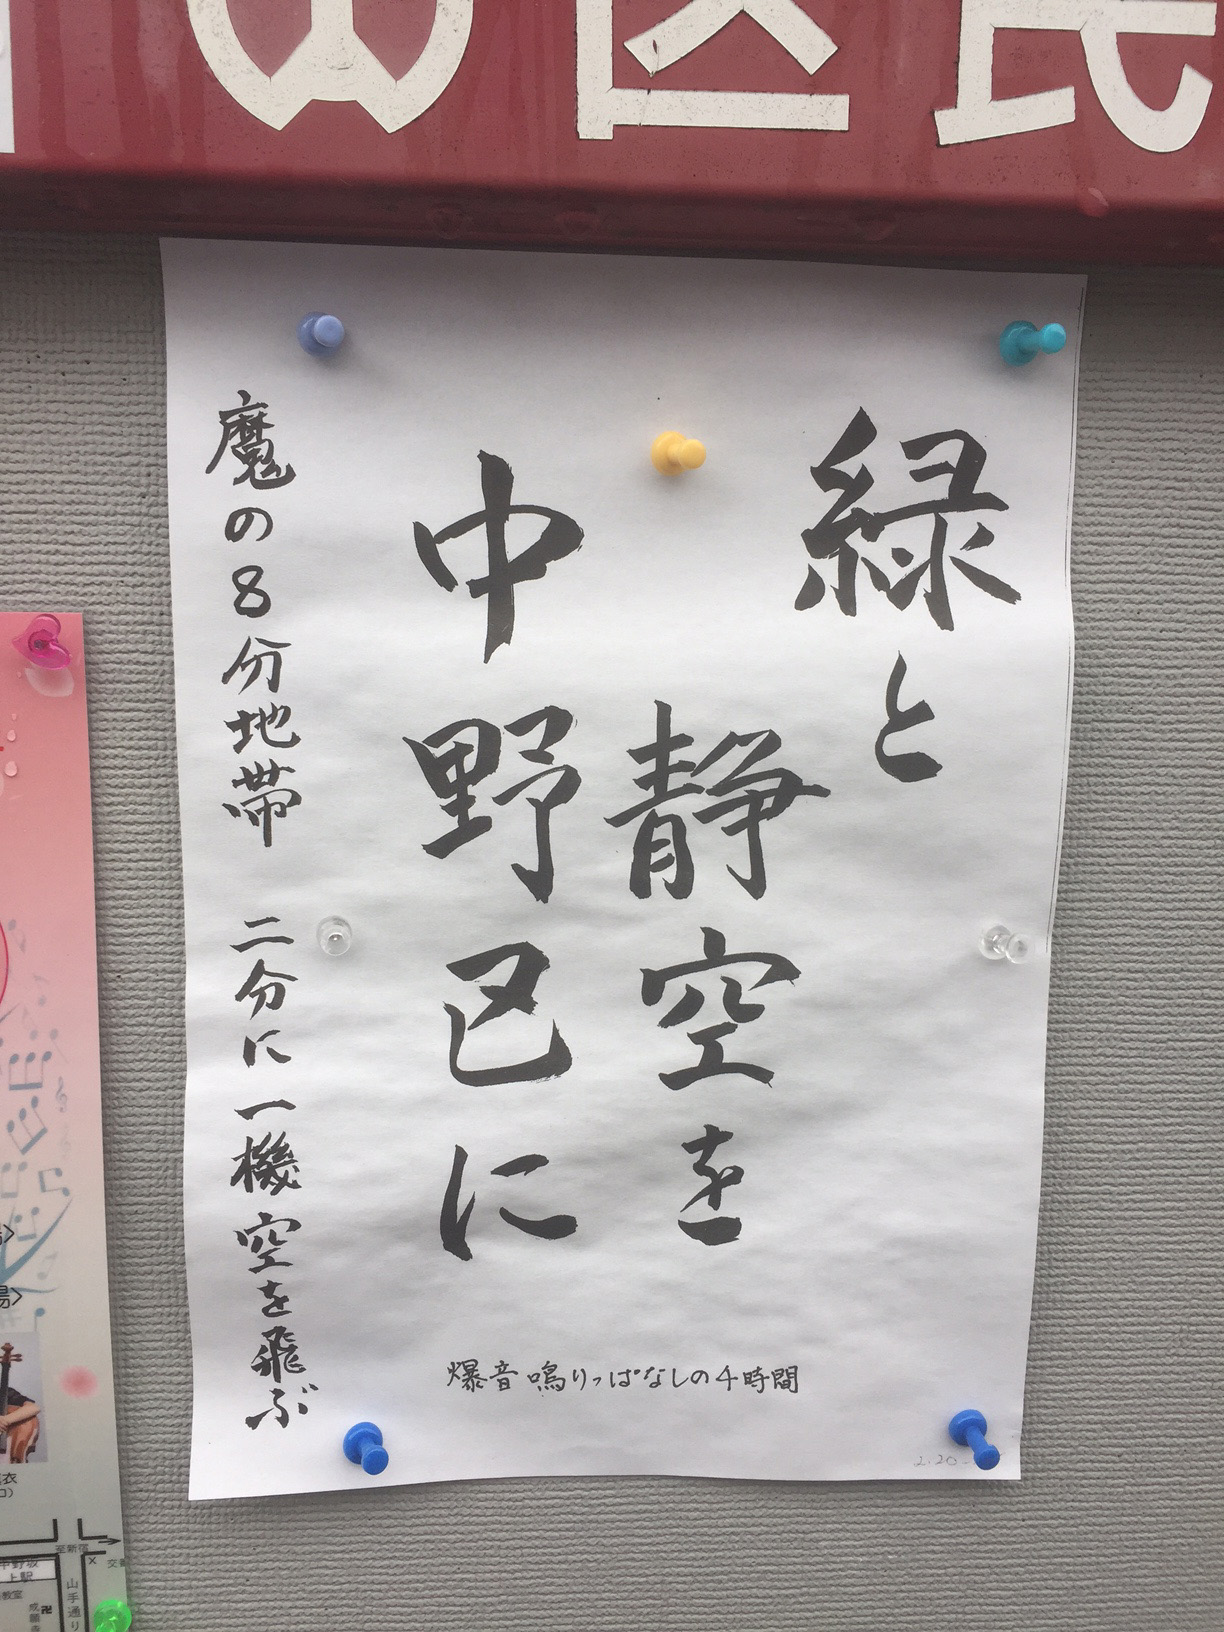 の区民
緑と
静空を
中野区に
魔の8分地帯 二分に一機空を飛ぶ
爆音鳴りっぱなしの4時間
2.20
至新宿
中野坂
上駅
山手通り